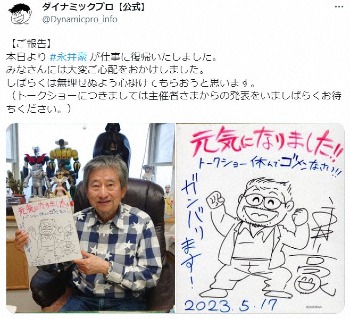 ダイナミックプロ【公式】
@Dynamicpro_info
【ご報告】
本日より #永井豪 が仕事に復帰いたしました。
みなさんには大変ご心配をおかけしました。
しばらくは無理せぬよう心掛けてもらおうと思います。
（トークショーにつきましては主催者さまからの発表をいましばらくお待
ちください。）
元気になりました!!
トークショー休んでゴメンなさい!!
ガンバリます!
2023.5.17